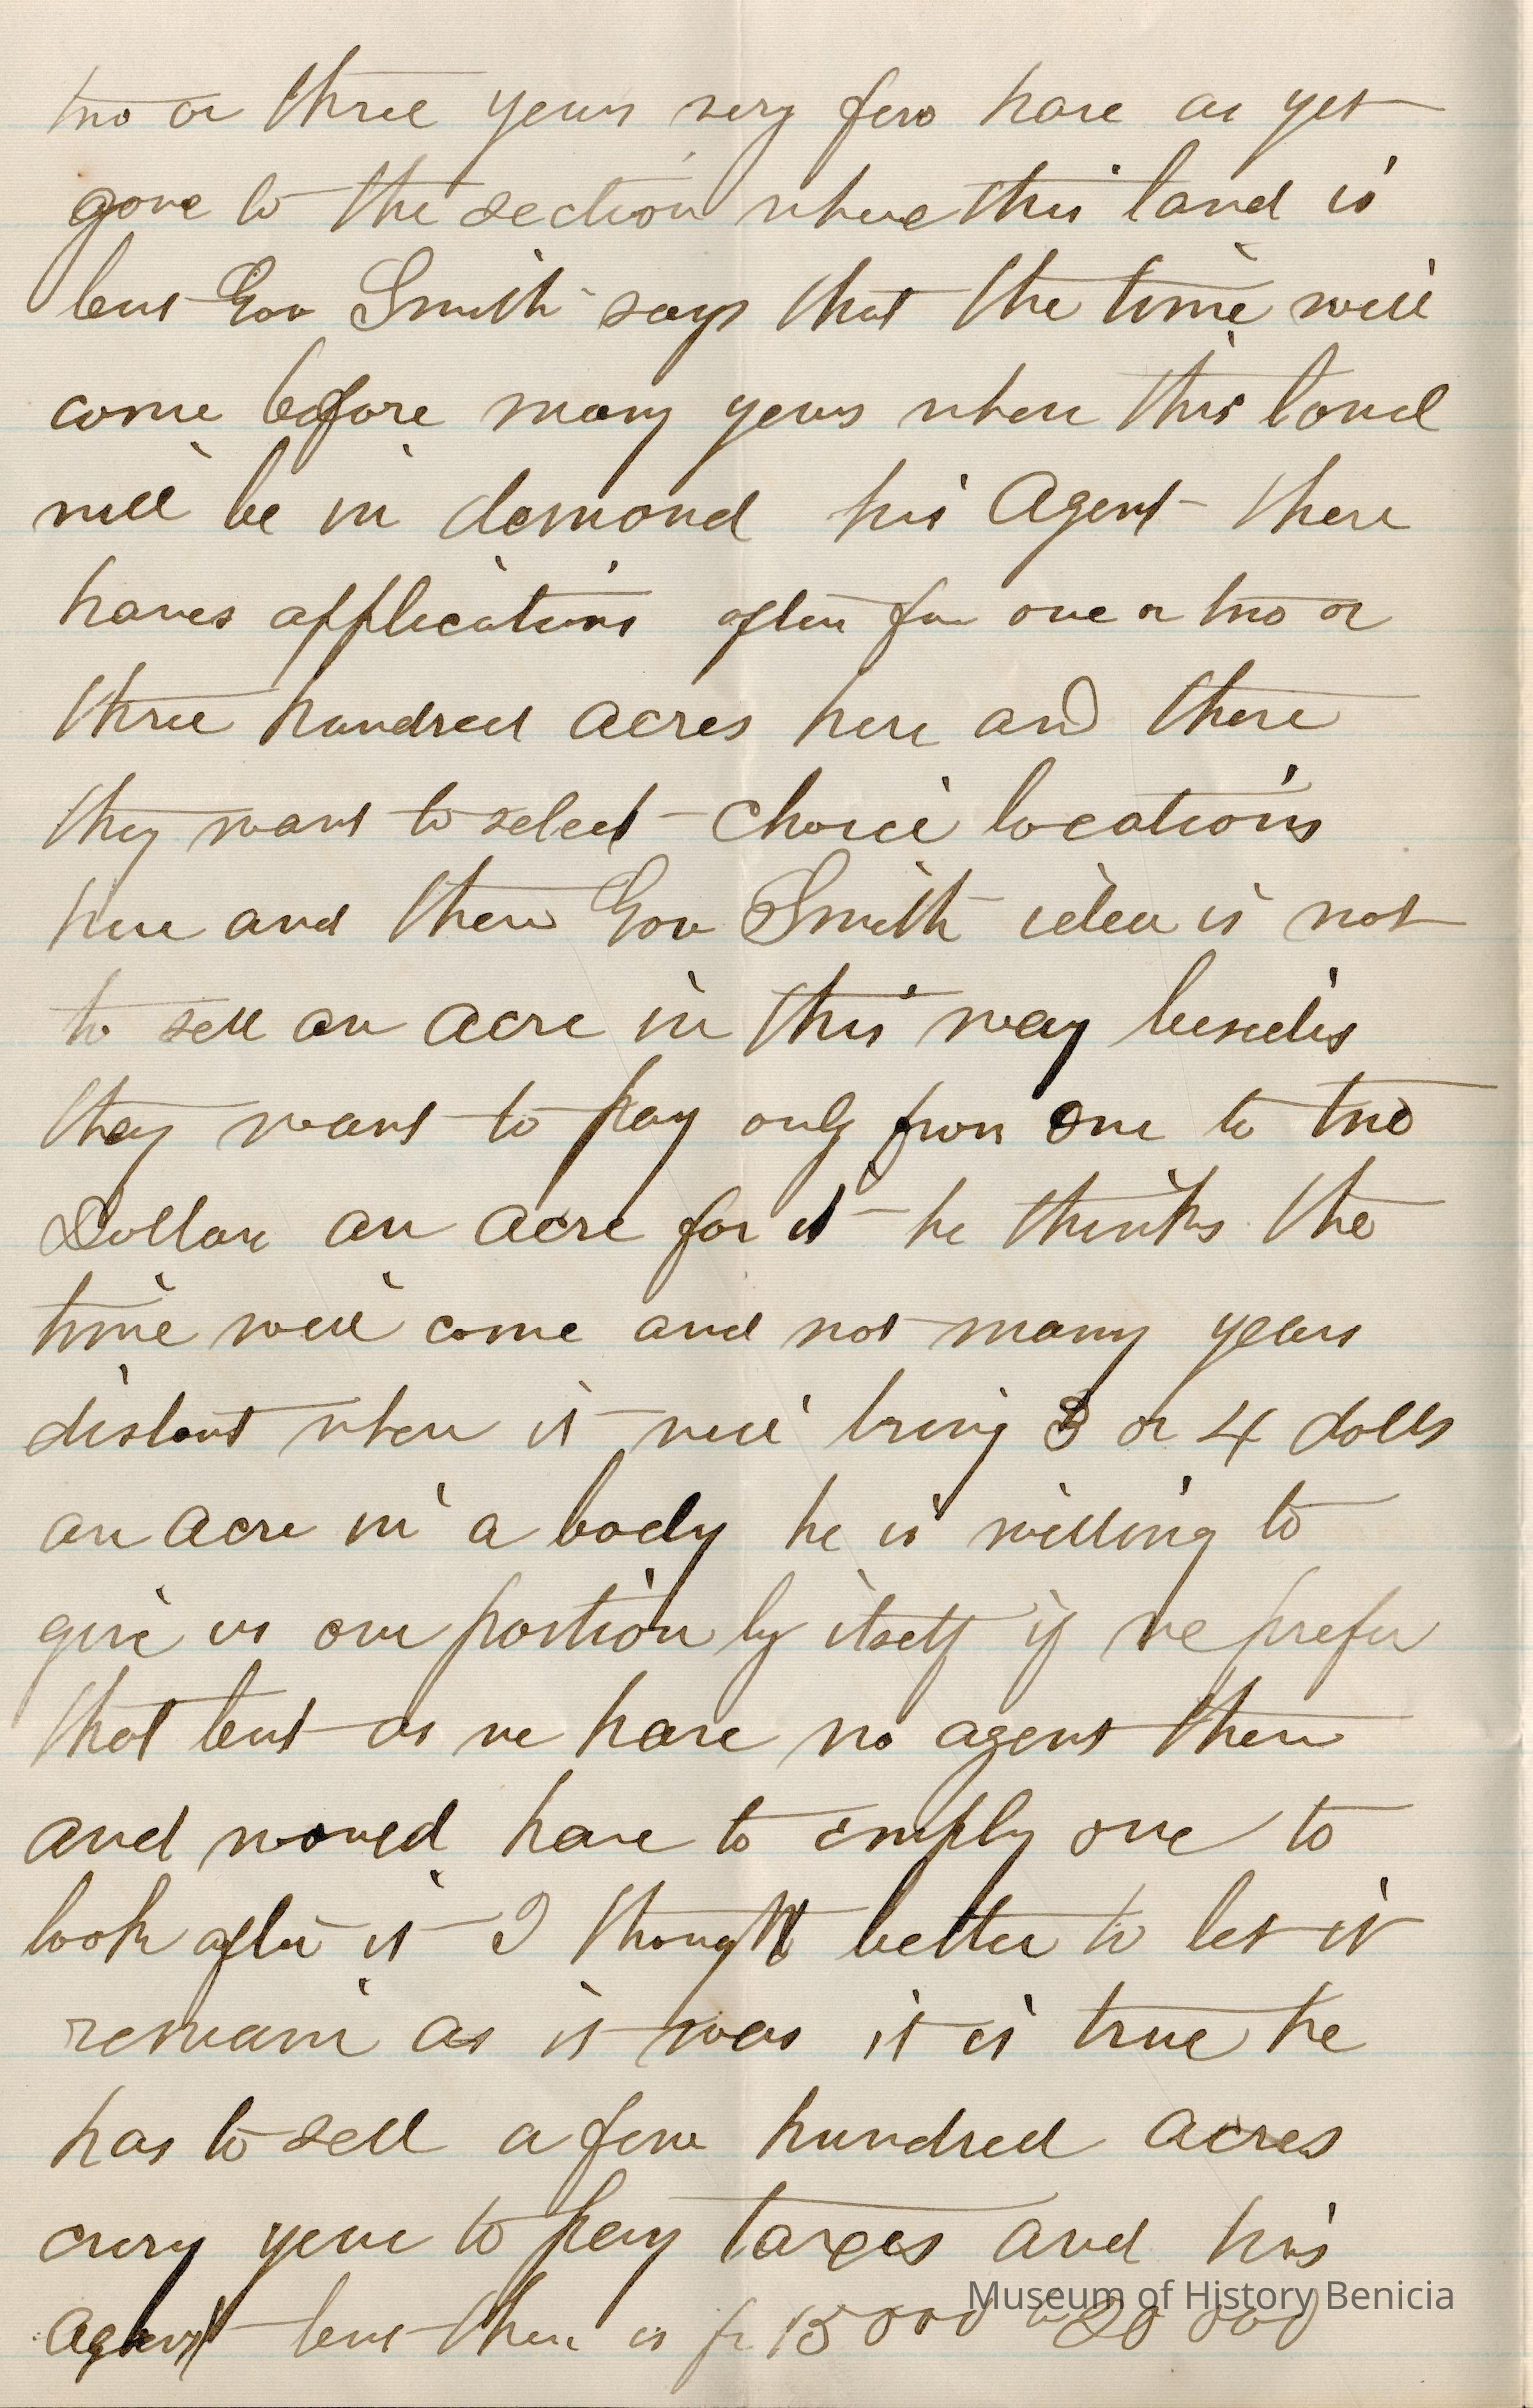 two or three years very few have as yet
gone to the section where this land is
but Gov Smith says that the time will
come before many years when this land
will be in demand his Agent there
haves applications often for one or two or
three hundred acres here and there
they want to select choice locations
here and there Gov Smith idea is not
to sell an acre in this way besides
they want to pay only from one to two
Dollars an acre for it he thinks the
time will come and not many years
distant when it will bring 3 or 4 dolls
an acre in a body he is willing to
give us our portion by itself if we prefer
that but as we have no agent there
and would have to employ one to
look after it I thought better to let it
remain as it was it is true he
has to sell a few hundred acres
every year to pay taxes and his
Agent but there is fr 15000 to 20 000
Museum of History Benicia